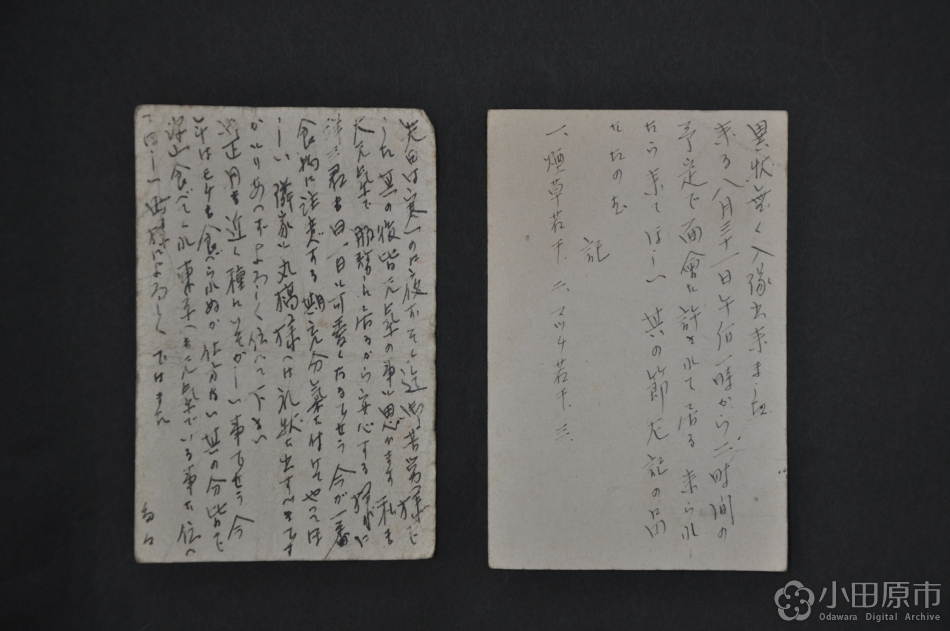 異状無く入隊出来ました
来る八月三十一日午后一時から二時間の
予定で面会は許されて居る 来られ
たら来てほしい 其の節左記の品
たのむ
記
一、煙草若干 二、マッチ若干 三、
先日は寒いのに夜おそく迄御苦労様で
した 其の後皆元気の事と思ひます 私も
大元気で 勤務して居るから安心する様に
洋三君も日一日と可愛くなるでせう 今が一番
食物に注意する時 充分気を付けてやってほ
しい 隣家の丸橋様へは礼状を出すべきです
がよろしく伝へて下さい
お正月も近く種々いそがしい事でせう 今
年はモチも食べられぬが仕方ない 其の分皆で
沢山食べてくれ 東京へも元気でいる事を伝へ
てほしい 母様によろしく でわまた
小田原市
Odawara Digital Archive